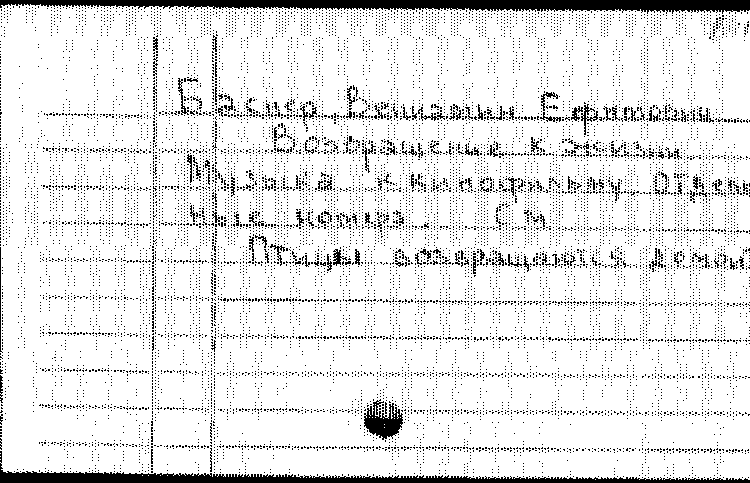 Баснер, Вениамин Ефимович
Возвращение к жизни
Музыка к кинофильму. Отдель
ные номера. См
Птицы возвращаются домой